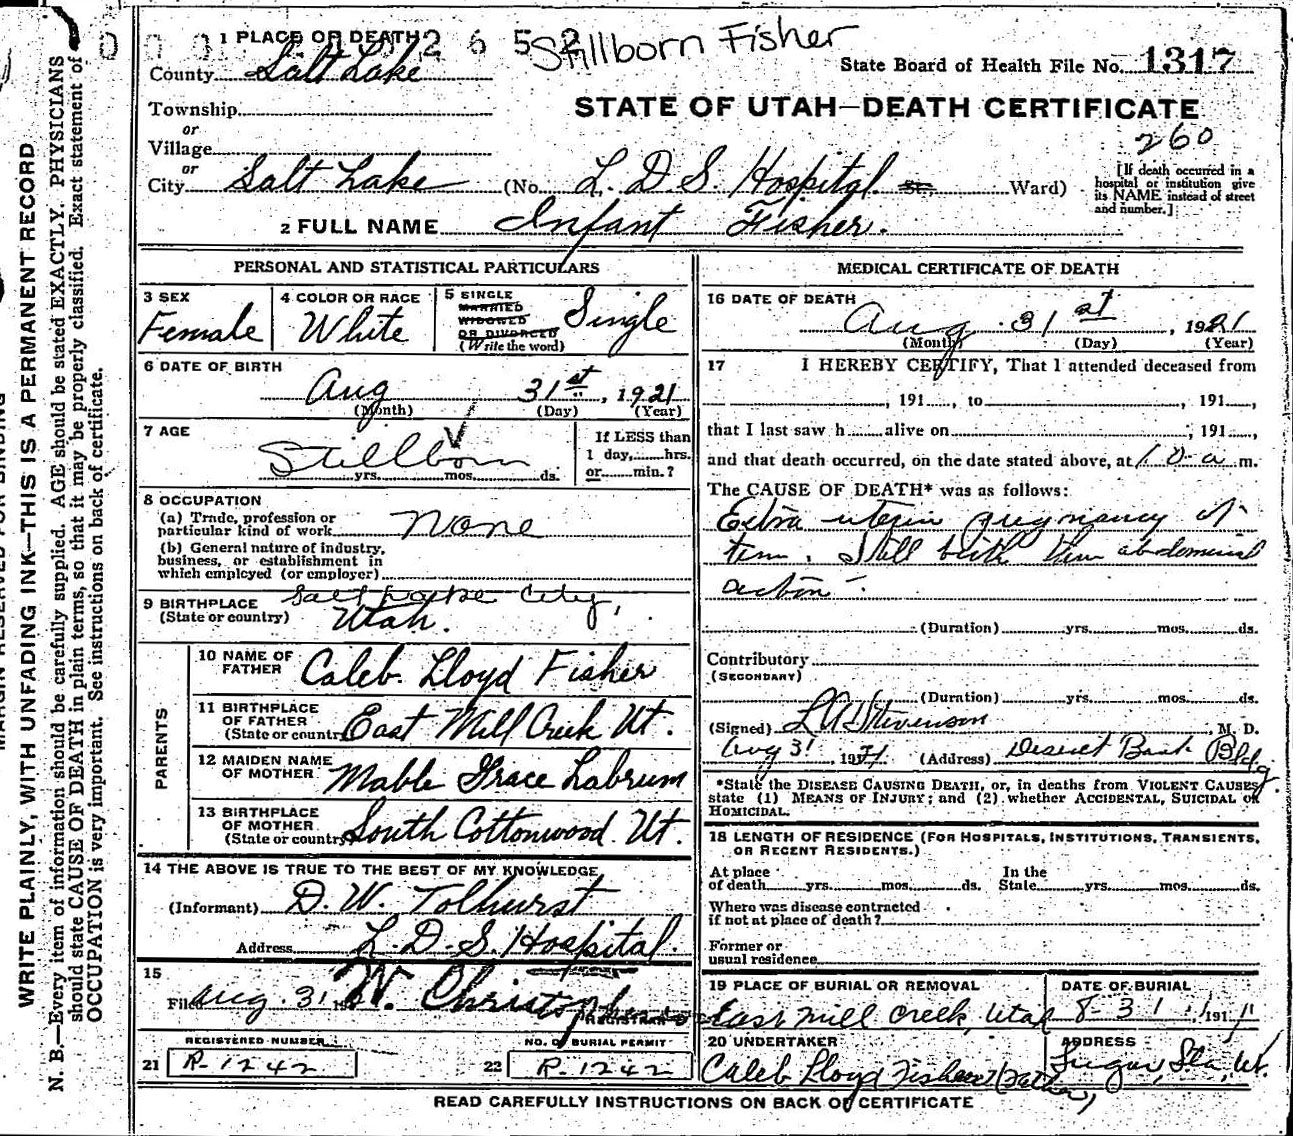 1 PLACE OF DEATH
2 6 5 2
Stillborn Fisher
County Salt Lake
State Board of Health File No. 1317
Township
or
Village
or
STATE OF UTAH—DEATH CERTIFICATE
260
City Salt Lake (No. L. D. S. Hospital St. Ward)
[If death occurred in a
hospital or institution give
its NAME instead of street
and number.]
2 FULL NAME Infant Fisher.
PERSONAL AND STATISTICAL PARTICULARS
3 SEX
Female
4 COLOR OR RACE
White
5 SINGLE
MARRIED
WIDOWED
OR DIVORCED
(Write the word)
Single
6 DATE OF BIRTH
Aug 31st, 1921
(Month) (Day) (Year)
7 AGE
Stillborn
yrs. mos. ds.
If LESS than
1 day, hrs.
or min.?
8 OCCUPATION
(a) Trade, profession or
particular kind of work None
(b) General nature of industry,
business, or establishment in
which employed (or employer)
9 BIRTHPLACE
(State or country)
Salt Lake City,
Utah.
PARENTS
10 NAME OF
FATHER Caleb Lloyd Fisher
11 BIRTHPLACE
OF FATHER
(State or country) East Mill Creek Ut.
12 MAIDEN NAME
OF MOTHER Mable Grace Labrum
13 BIRTHPLACE
OF MOTHER
(State or country) South Cottonwood Ut.
14 THE ABOVE IS TRUE TO THE BEST OF MY KNOWLEDGE
(Informant) D. W. Tolhurst
Address L. D. S. Hospital.
15
Filed Aug. 31 W. Christopherson
REGISTRAR
REGISTERED NUMBER
21 R-1242
NO. OF BURIAL PERMIT
22 R-1242
MEDICAL CERTIFICATE OF DEATH
16 DATE OF DEATH
Aug. 31st, 1921
(Month) (Day) (Year)
17 I HEREBY CERTIFY, That I attended deceased from
, 191 , to , 191 ,
that I last saw h alive on , 191 ,
and that death occurred, on the date stated above, at 10 a m.
The CAUSE OF DEATH* was as follows:
Extra uterin pregnancy at
term. Still birth thru abdominal
(Duration) yrs. mos. ds.
Contributory
(SECONDARY)
(Duration) yrs. mos. ds.
(Signed) L A Stevenson, M. D.
Aug 31, 19 (Address) Deseret Bank Bldg.
*State the DISEASE CAUSING DEATH, or, in deaths from VIOLENT CAUSES
state (1) MEANS OF INJURY; and (2) whether ACCIDENTAL, SUICIDAL or
HOMICIDAL.
18 LENGTH OF RESIDENCE (FOR HOSPITALS, INSTITUTIONS, TRANSIENTS,
OR RECENT RESIDENTS.)
At place
of death yrs. mos. ds.
In the
State yrs. mos. ds.
Where was disease contracted
if not at place of death?
Former or
usual residence
19 PLACE OF BURIAL OR REMOVAL
East mill creek, Utah
DATE OF BURIAL
8-31, 191
20 UNDERTAKER
Caleb Lloyd Fisher (father)
ADDRESS
Sugar, Sta, Ut.
READ CAREFULLY INSTRUCTIONS ON BACK OF CERTIFICATE
MARGIN RESERVED FOR BINDING
WRITE PLAINLY, WITH UNFADING INK—THIS IS A PERMANENT RECORD
N. B.—Every item of information should be carefully supplied. AGE should be stated EXACTLY. PHYSICIANS
should state CAUSE OF DEATH in plain terms, so that it may be properly classified. Exact statement of
OCCUPATION is very important. See instructions on back of certificate.